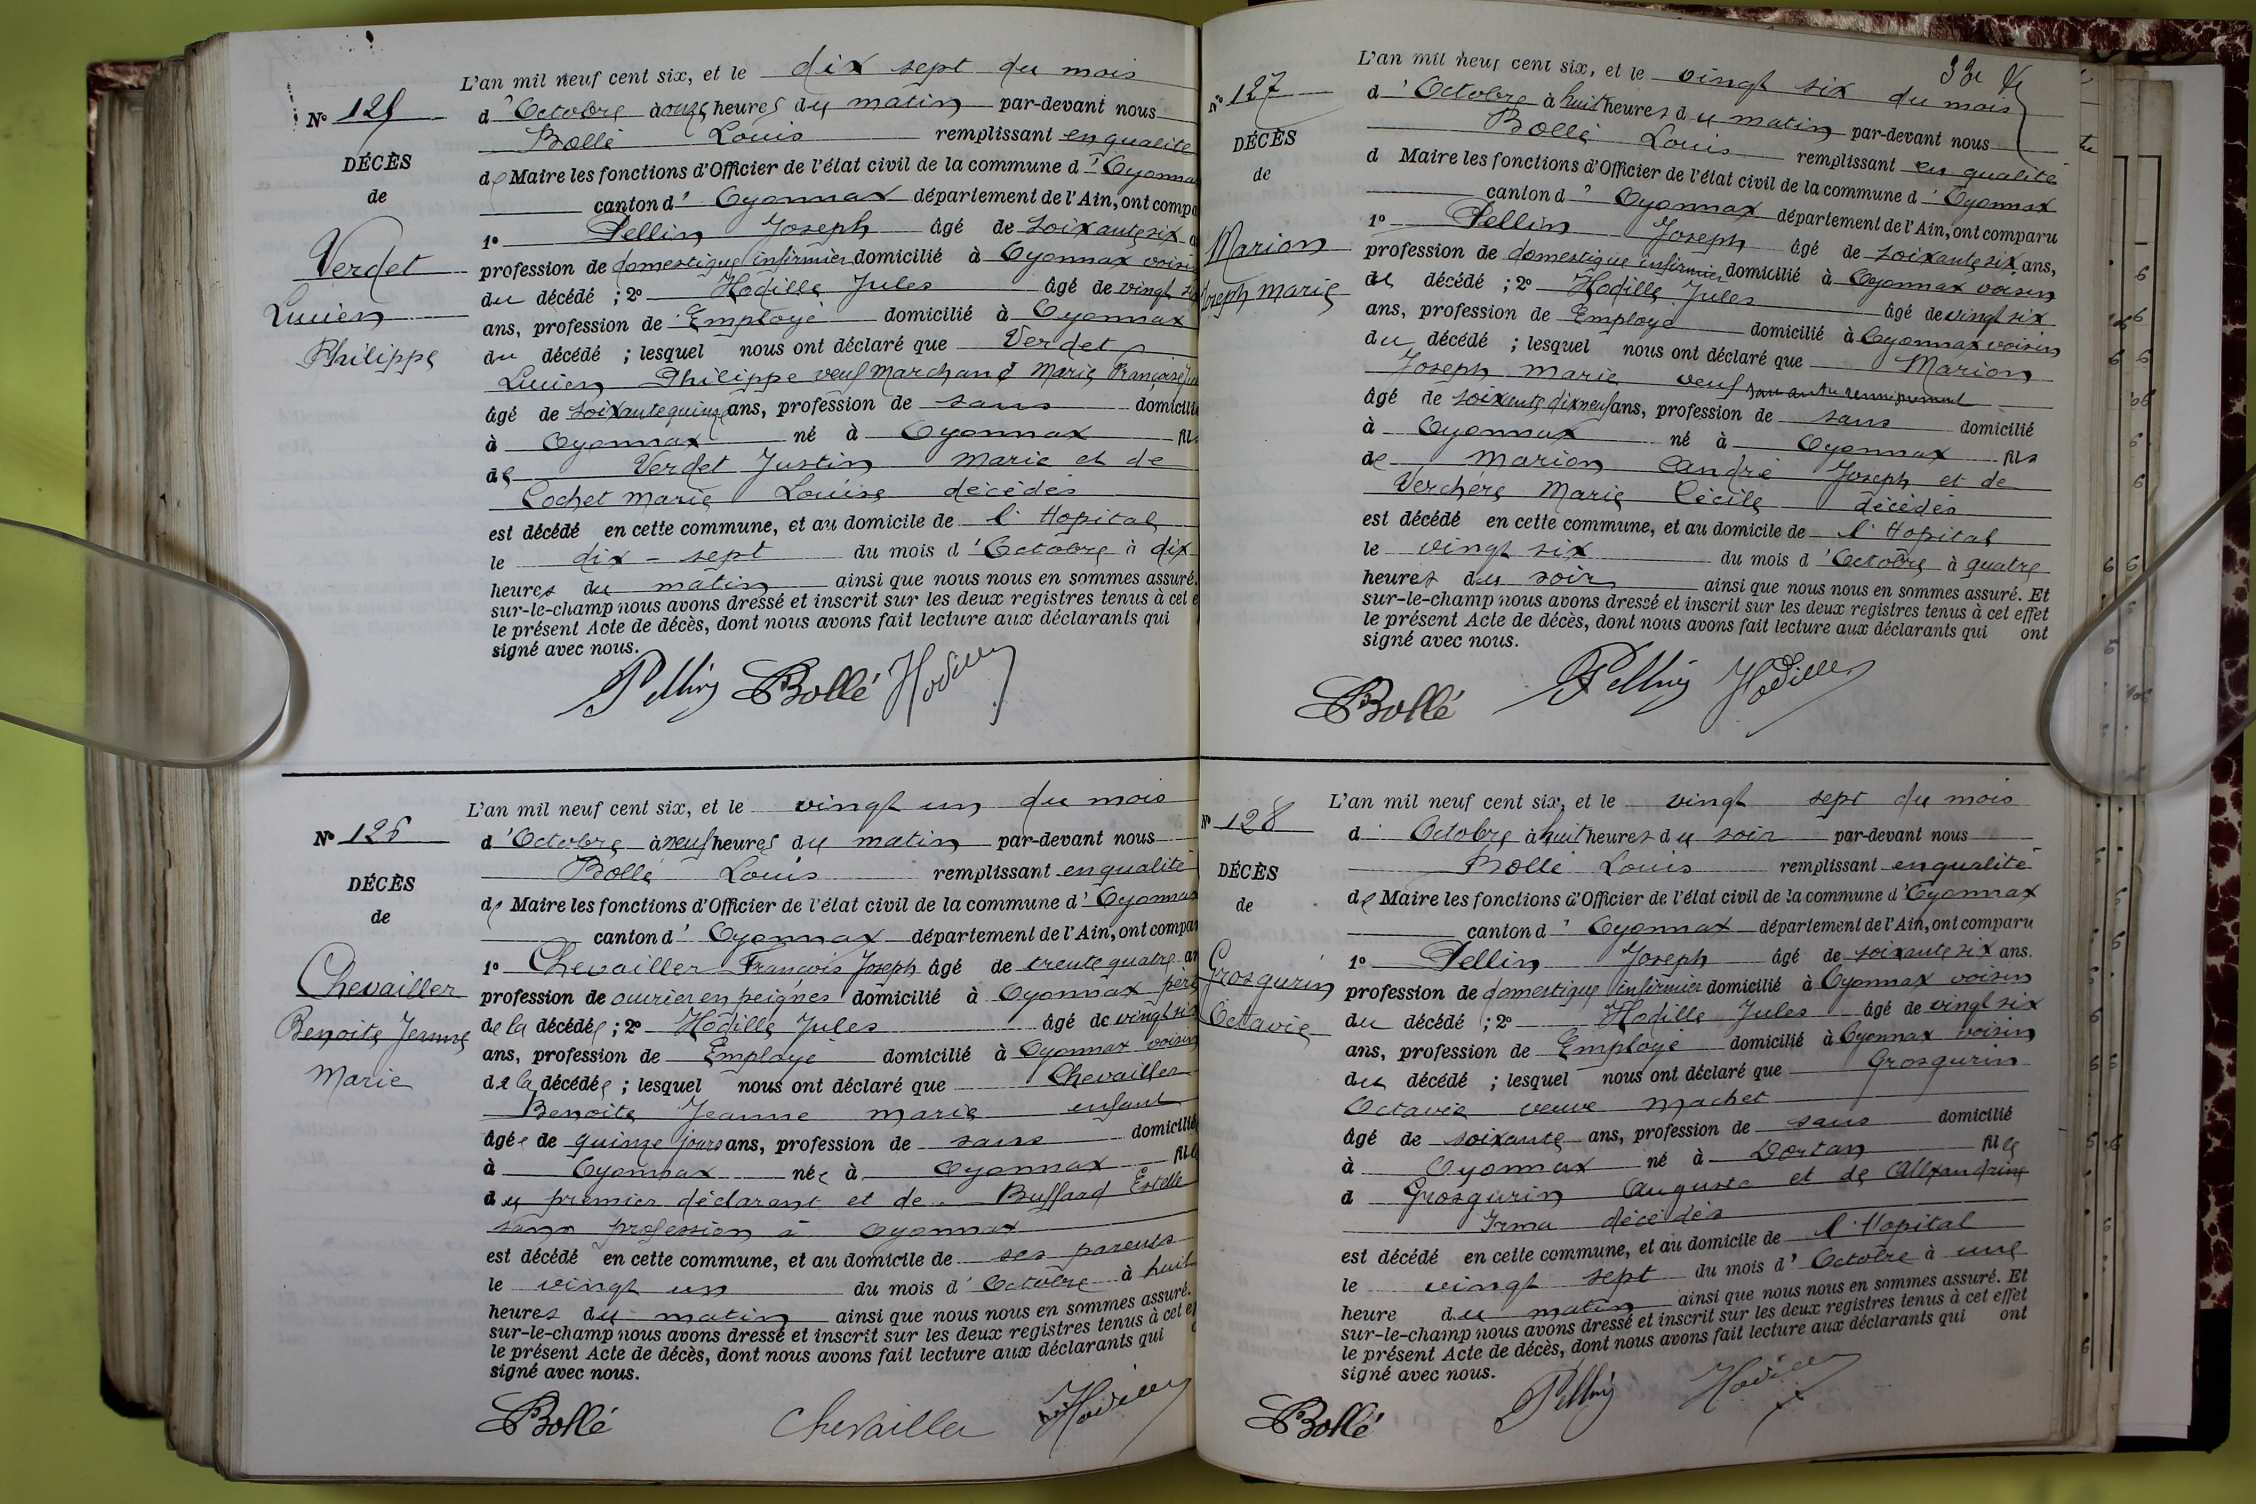 L'an mil neuf cent six, et le dix sept du mois
N° 125
d'Octobre à onze heures du matin par-devant nous
Bollé Louis remplissant en qualité
DÉCÈS
de Maire les fonctions d'Officier de l'état civil de la commune d'Oyonna
de
canton d'Oyonnax département de l'Ain, ont compa
1° Pellin Joseph âgé de soixante six
Verdet
profession de domestique infirmier domicilié à Oyonnax voisin
du décédé ; 2° Hodille Jules âgé de vingt
Lucien
ans, profession de Employé domicilié à Oyonnax
Philippe
du décédé ; lesquel nous ont déclaré que Verdet
Lucien Philippe veuf Marchand Marie Françoise
âgé de soixante quinze ans, profession de sans domicilié
à Oyonnax né à Oyonnax fils
de Verdet Justin Marie et de
Cochet Marie Louise décédés
est décédé en cette commune, et au domicile de l'Hopital
le dix-sept du mois d'Octobre à dix
heures du matin ainsi que nous nous en sommes assuré.
sur-le-champ nous avons dressé et inscrit sur les deux registres tenus à cet e
le présent Acte de décès, dont nous avons fait lecture aux déclarants qui
signé avec nous.
Pellin Bollé Hodille
L'an mil neuf cent six, et le vingt un du mois
N° 126
d'Octobre à neuf heures du matin par-devant nous
Bollé Louis remplissant en qualité
DÉCÈS
de Maire les fonctions d'Officier de l'état civil de la commune d'Oyonnax
de
canton d'Oyonnax département de l'Ain, ont compar
1° Chevailler François Joseph âgé de trente quatre an
Chevailler
profession de ouvrier en peignes domicilié à Oyonnax père
Benoite Jeanne
de la décédée ; 2° Hodille Jules âgé de vingt six
ans, profession de Employé domicilié à Oyonnax voisin
Marie
de la décédée ; lesquel nous ont déclaré que Chevailler
Benoite Jeanne Marie enfant
âgée de quinze jours ans, profession de sans domicilié
à Oyonnax née à Oyonnax fille
du premier déclarant et de Buffard Estelle
sans profession à Oyonnax
est décédé en cette commune, et au domicile de ses parents
le vingt un du mois d'Octobre à huit
heures du matin ainsi que nous nous en sommes assuré.
sur-le-champ nous avons dressé et inscrit sur les deux registres tenus à cet e
le présent Acte de décès, dont nous avons fait lecture aux déclarants qui
signé avec nous.
Bollé Chevailler Hodille
L'an mil neuf cent six, et le vingt six du mois
N° 127
d'Octobre à huit heures du matin par-devant nous
Bollé Louis remplissant en qualité
DÉCÈS
d Maire les fonctions d'Officier de l'état civil de la commune d'Oyonnax
de
canton d'Oyonnax département de l'Ain, ont comparu
1° Pellin Joseph âgé de soixante six ans,
Marion
profession de domestique infirmier domicilié à Oyonnax voisin
Joseph Marie
du décédé ; 2° Hodille Jules âgé de vingt six
ans, profession de Employé domicilié à Oyonnax voisin
du décédé ; lesquel nous ont déclaré que Marion
Joseph Marie veuf sans autre renseignement
âgé de soixante dix neuf ans, profession de sans domicilié
à Oyonnax né à Oyonnax fils
de Marion André Joseph et de
Verchere Marie Cécile décédés
est décédé en cette commune, et au domicile de l'Hopital
le vingt six du mois d'Octobre à quatre
heures du soir ainsi que nous nous en sommes assuré. Et
sur-le-champ nous avons dressé et inscrit sur les deux registres tenus à cet effet
le présent Acte de décès, dont nous avons fait lecture aux déclarants qui ont
signé avec nous.
Bollé Pellin Hodille
L'an mil neuf cent six, et le vingt sept du mois
N° 128
d Octobre à huit heures du soir par-devant nous
Bollé Louis remplissant en qualité
DÉCÈS
de Maire les fonctions d'Officier de l'état civil de la commune d'Oyonnax
de
canton d'Oyonnax département de l'Ain, ont comparu
1° Pellin Joseph âgé de soixante six ans.
Grosgurin
profession de domestique infirmier domicilié à Oyonnax voisin
Octavie
du décédé ; 2° Hodille Jules âgé de vingt six
ans, profession de Employé domicilié à Oyonnax voisin
du décédé ; lesquel nous ont déclaré que Grosgurin
Octavie veuve Machet
âgé de soixante ans, profession de sans domicilié
à Oyonnax né à Dortan fille
d Grosgurin Auguste et de Alexandrine
Irma décédés
est décédé en cette commune, et au domicile de l'Hopital
le vingt sept du mois d'Octobre à une
heure du matin ainsi que nous nous en sommes assuré. Et
sur-le-champ nous avons dressé et inscrit sur les deux registres tenus à cet effet
le présent Acte de décès, dont nous avons fait lecture aux déclarants qui ont
signé avec nous.
Bollé Pellin Hodille